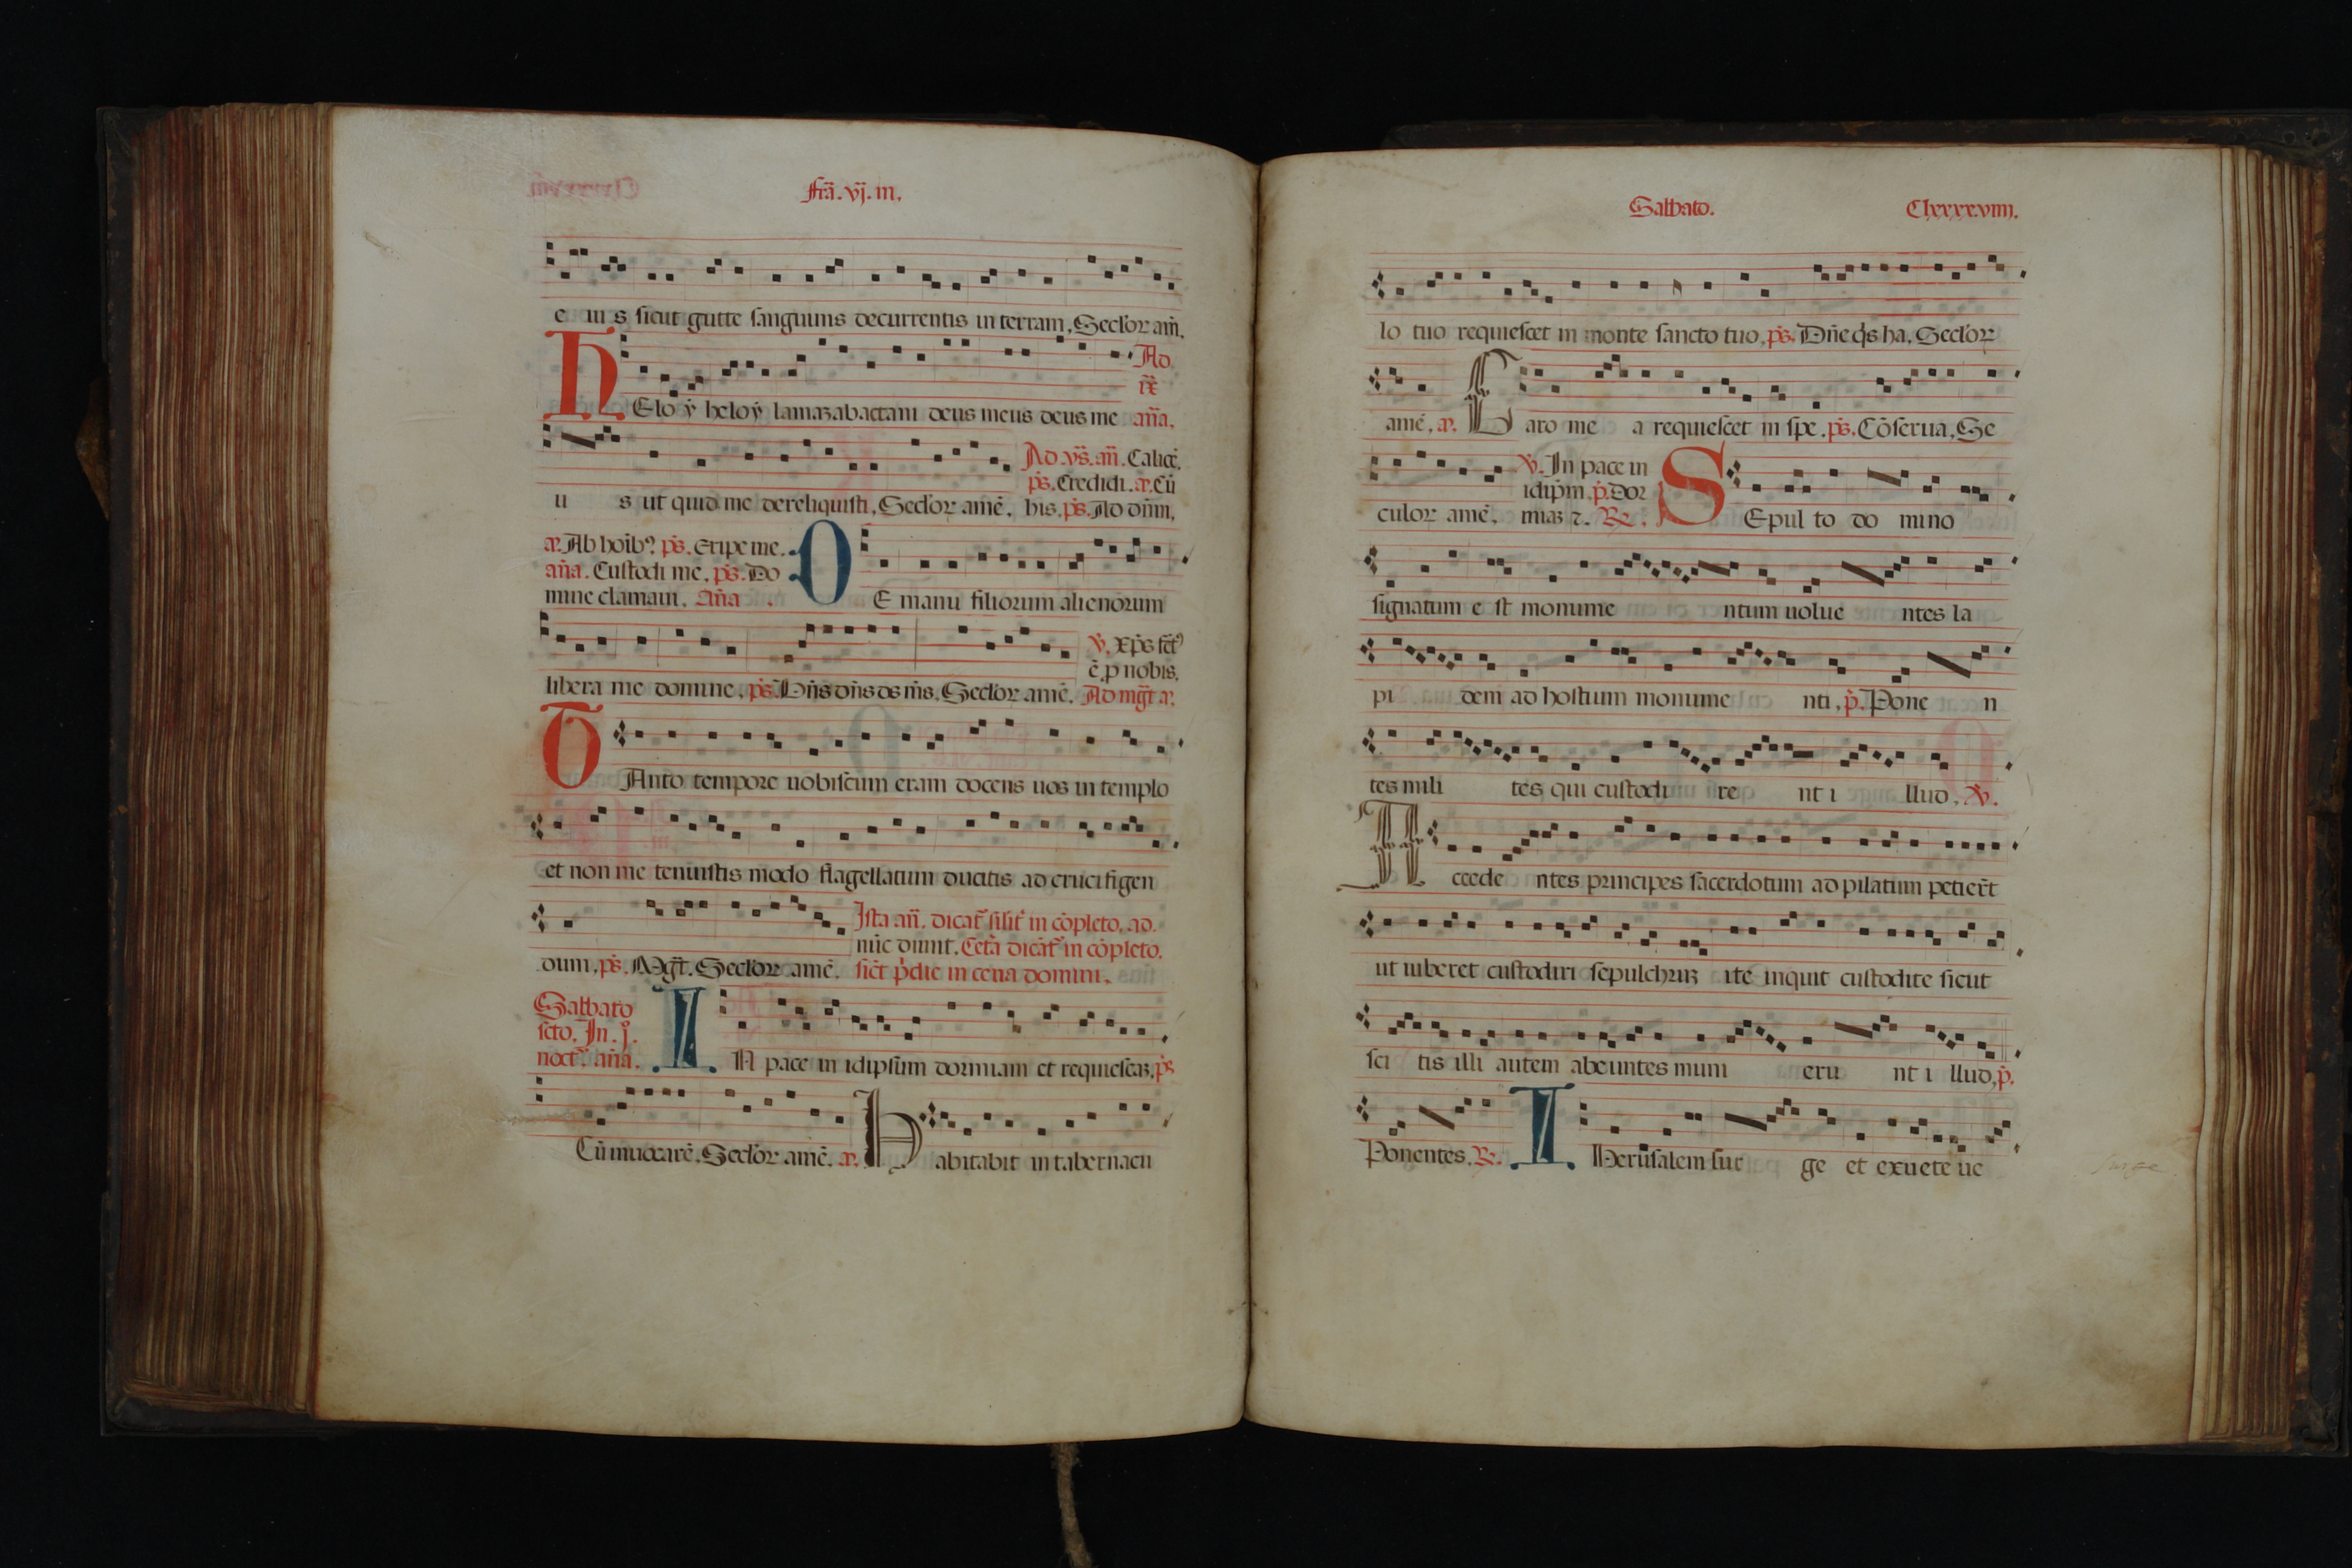 Fr̃a. vj. in.
e iu s sicut gutte sanguinis decurrentis in terram, Seclor am̄.
HEloy heloy lamazabactani deus meus deus me
Ad
ix
añ̄a.
u s ut quid me dereliquisti, Seclor amē.
Ad. vs̄. an̄. Calicē.
ps. Credidi. a. Cū
his. ps. Ad dn̄m,
a. Ab hoib9 ps. Eripe me.
an̄a. Custodi me, ps. Do
mine clamaui. An̄a
DE manu filiorum alienorum
libera me domine, ps. Dn̄s dn̄s ds m̄s. Seclor amē.
v. xp̄s fct9
ē p nobis.
Ad mg̃t a.
TAnto tempore uobiscum eram docens uos in templo
et non me tenuistis modo flagellatum ducitis ad crucifigen
dum, ps. Mg̃t. Seclor amē.
Ista an̄. dicat̃ silit̃ in cōpleto. ad.
nūc dimit. Cetã dicāt̃ in cōpleto.
sic̃t p̃die in cena domini.
Sabbato
sc̃to. In. j.
noct̃. an̄a.
IN pace in idipsum dormiam et requiescaz, ps
Cū inuocarē. Seclor amē. a. Habitabit in tabernacu
Sabbato.
Clxxxxviiij.
lo tuo requiescet in monte sancto tuo, ps. Dn̄e q̇s ha, Seclor
amē, a. Caro me a requiescet in spe. ps. Cōserua, Se
culor amē.
v. In pace in
idip̄m. p. Dor
miaz 7. R.
SEpul to do mino
signatum e st monume ntum uolue ntes la
pi dem ad hostium monume nti, p. Pone n
tes mili tes qui custodi re nt i llud, v.
Accede ntes principes sacerdotum ad pilatum petier̃t
ut iuberet custodiri sepulchruz ite inquit custodite sicut
sci tis illi autem abeuntes muni eru nt i llud, p.
Ponentes. R. IHerusalem sur ge et exue te ue
surge